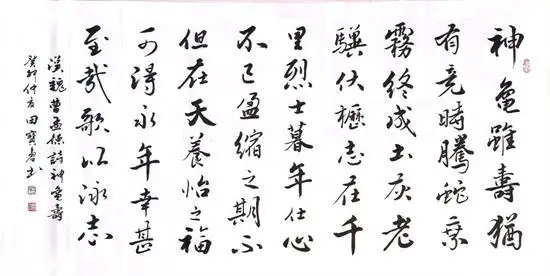 神龜雖壽猶
有竟時騰蛇乘
霧終成土灰老
驥伏櫪志在千
里烈士暮年壯心
不已盈縮之期不
但在天養怡之福
可得永年幸甚
至哉歌以詠志
漢魏曹孟德詩神龜壽
癸卯仲田寶書